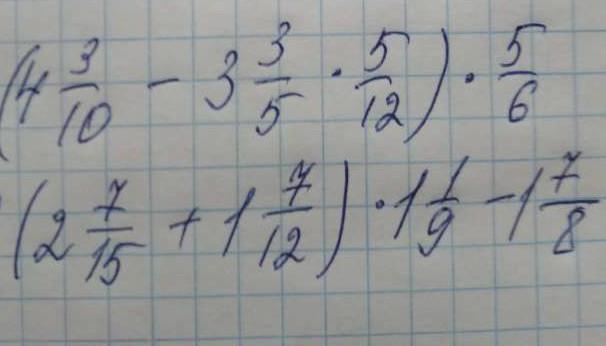 (4 3/10 - 3 3/5 · 5/12) · 5/6
(2 7/15 + 1 7/12) · 1 1/9 - 1 7/8